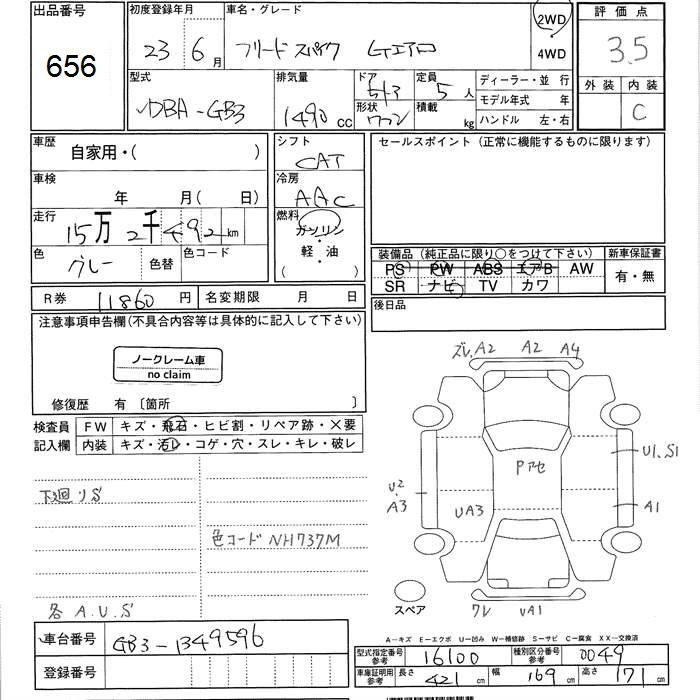 出品番号
656
初度登録年月
23 年 6 月
車名・グレード
フリードスパイク Gエアロ
2WD
4WD
評価点
3.5
外装 内装
C
型式
DBA-GB3
排気量
1490 cc
ドア
5ドア
形状
ワゴン
定員
5 人
積載
kg
ディーラー・並行
モデル年式 年
ハンドル 左・右
車歴
自家用・( )
車検
年 月( 日)
走行
15万2千492 km
色
グレー
色替
色コード
シフト
CAT
冷房
AAC
燃料
ガソリン
・
軽・油
( )
セールスポイント (正常に機能するものに限ります)
装備品 (純正品に限り○をつけて下さい)
PS PW ABS エアB AW
SR ナビ TV カワ
新車保証書
有・無
R券 11860 円
名変期限 月 日
後日品
注意事項申告欄(不具合内容等は具体的に記入して下さい)
ノークレーム車
no claim
修復歴 有 〔箇所 〕
検査員
記入欄
FW キズ・飛石・ヒビ割・リペア跡・X要
内装 キズ・汚レ・コゲ・穴・スレ・キレ・破レ
下廻リS
色コードNH737M
各A.U.S
ズレ.A2 A2 A4
Pアセ
U1.S1
U2
A3
UA3
A1
スペア
ワレ UA1
A-キズ E-エクボ U-凹み W-補修跡 S-サビ C-腐食 XX-交換済
車台番号
GB3-1349596
登録番号
型式指定番号
参考
16100
種別区分番号
参考
0049
車庫証明用
参考
長さ 421 cm
幅 169 cm
高さ 171 cm